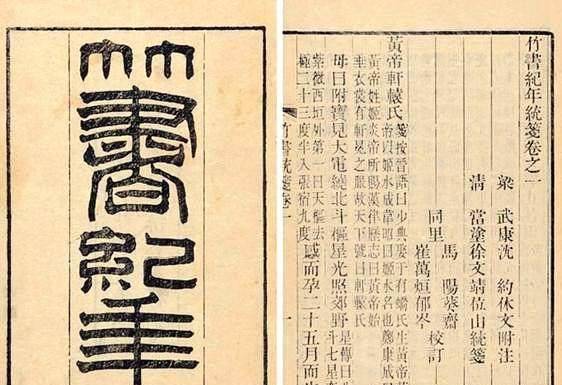 竹書紀年
竹書紀年統箋卷之一
梁 武康沈 約休文附注
清 當塗徐文靖位山統箋
馬 陽葵齋
同里 崔萬烜郁岑 校訂
黃帝軒轅氏
箋按晉語曰少典娶于有蟜氏生黃帝
姬水成
姬水名也鄭康成
黃帝姓姬炎帝所賜漢律歷志曰黃帝始
垂衣裳有軒冕之服故天下號曰軒轅氏
母曰附寶見大電繞北斗樞星光照郊野
星傳曰
斗七星在
紫微西垣外第一曰天樞去
極二十三度半入張宿九度
感而孕二十五月而
竹書統箋卷一
一